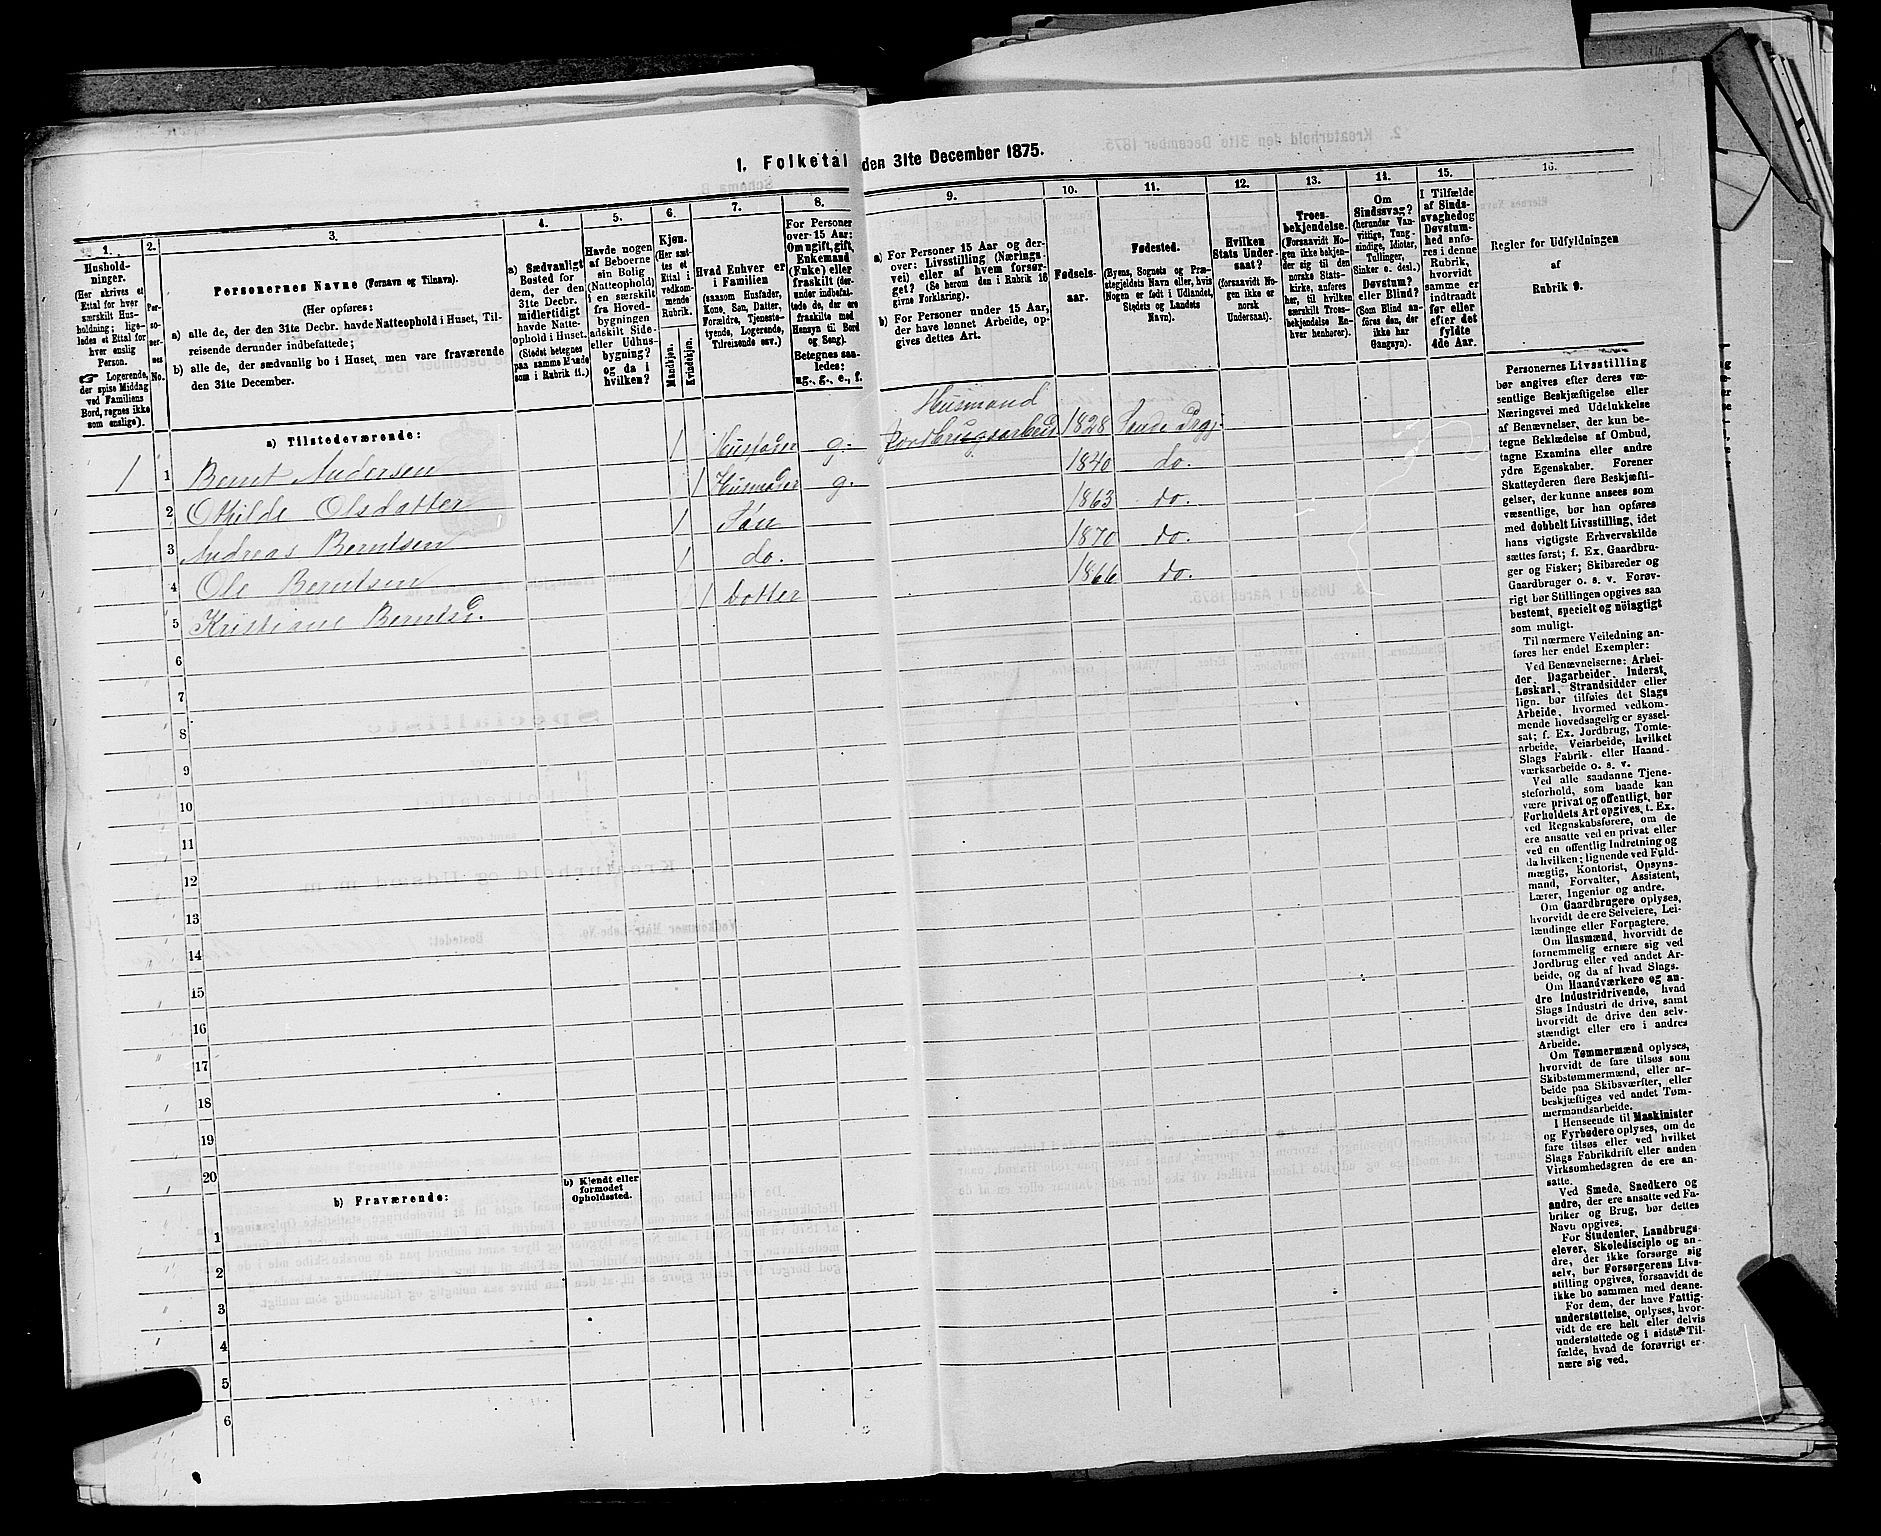 1. Folketal den 31te December 1875.
1.
2.
3.
4.
5.
6.
7.
8.
9.
10.
11.
12.
13.
14.
15.
16.
Hushold-
ninger.
(Her skrives et
Ettal for hver
særskilt Hus-
holdning; lige-
ledes et Ettal for
hver enslig
Person.
Logerende,
der spise Middag
ved Familiens
Bord, regnes ikke
som enslige).
Per-
so-
ner-
nes
No.
Personernes Navne (Fornavn og Tilnavn).
(Her opføres:
a) alle de, der den 31te Decbr. havde Natteophold i Huset, Til-
reisende derunder indbefattede;
b) alle de, der sædvanlig bo i Huset, men vare fraværende
den 31te December.
a) Sædvanligt
Bosted for
dem, der den
31te Decbr.
midlertidigt
havde Natte-
ophold i Huset.
(Stedet betegnes
paa samme Maade
som i Rubrik 11.)
Havde nogen
af Beboerne
sin Bolig
(Natteophold)
i en særskilt
fra Hoved-
bygningen
adskilt Side-
eller Udhus-
bygning?
og da i
hvilken?
Kjøn.
(Her sæt-
tes et
Ettal i
vedkom-
mende
Rubrik.
Mandkjøn.
Kvindekjøn.
Hvad Enhver er
i Familien
(saasom Husfader,
Kone, Søn, Datter,
Forældre, Tjeneste-
tyende, Logerende,
Tilreisende osv.)
For Personer
over 15 Aar:
Om ugift, gift,
Enkemand
(Enke) eller
fraskilt (der-
under indbefat-
tede de, der ere
fraskilte med
Hensyn til Bord
og Seng).
Betegnes saa-
ledes:
ug., g., e., f.
a) For Personer 15 Aar og der-
over: Livsstilling (Nærings-
vei) eller af hvem forsør-
get? (Se herom den i Rubrik 16
givne Forklaring).
b) For Personer under 15 Aar,
der have lønnet Arbeide, op-
gives dettes Art.
Fødsels-
aar.
Fødested.
(Byens, Sognets og Præ-
stegjeldets Navn eller, hvis
Nogen er født i Udlandet,
Stedets og Landets
Navn).
Hvilken
Stats Under-
saat?
(forsaavidt No-
gen ikke er
norsk
Undersaat).
Troes-
bekjendelse.
(Forsaavidt No-
gen ikke bekjen-
der sig til den
norske Stats-
kirke, anføres
her, til hvilken
særskilt Troes-
bekjendelse En-
hver henhører).
Om
Sindssvag?
(herunder Van-
vittige, Tung-
sindige, Idioter,
Tullinger,
Sinker o. desl.)
Døvstum?
eller Blind?
(Som Blind an-
føres den, der
ikke har
Gangsyn).
I Tilfælde
af Sinds-
svaghed og
Døvstum-
hed anfø-
res i denne
Rubrik,
hvorvidt
samme er
indtraadt
før eller
efter det
fyldte
4de Aar.
Regler for Udfyldningen
af
Rubrik 9.
a) Tilstedeværende:
Husmand
1 1 Bernt Andersen 1 Husfader g. Jordbrugsarbeid 1828 Sande Prgj.
2 Othilde Olsdatter 1 Husmoder g. 1840 do.
3 Andreas Berntsen 1 Søn 1863 do.
4 Ole Berntsen 1 do. 1870 do.
5 Kristiane Berntsd. 1 Dotter 1866 do.
6
7
8
9
10
11
12
13
14
15
16
17
18
19
20
b) Fraværende:
b) Kjendt eller
formodet
Opholdssted.
1
2
3
4
5
6
Personernes Livsstilling
bør angives efter deres væ-
sentlige Beskjæftigelse eller
Næringsvei med Udelukkelse
af Benævnelser, der kun be-
tegne Beklædelse af Ombud,
tagne Examina eller andre
ydre Egenskaber. Forener
Skatteyderen flere Beskjæfti-
gelser, der kunne ansees som
væsentlige, bør han opføres
med dobbelt Livsstilling, idet
hans vigtigste Erhvervskilde
sættes først; f. Ex. Gaardbru-
ger og Fisker; Skibsreder og
Gaardbruger o. s. v. Forøv-
rigt bør Stillingen opgives saa
bestemt, specielt og nöiagtigt
som muligt.
Til nærmere Veiledning an-
føres her endel Exempler:
Ved Benævnelserne: Arbei-
der, Dagarbeider, Inderst,
Løskarl, Strandsidder eller
lign. bør tilføies det Slags
Arbeide, hvormed vedkom-
mende hovedsagelig er syssel-
sat; f. Ex. Jordbrug, Tomte-
arbeide, Veiarbeide, hvilket
Slags Fabrik- eller Haand-
værksarbeide o. s. v.
Ved alle saadanne Tjene-
steforhold, som baade kan
være privat og offentligt, bør
Forholdets Art opgives, t. Ex.
ved Regnskabsførere, om de
ere ansatte ved en privat eller
ved en offentlig Indretning og
da hvilken; lignende ved Fuld-
mægtig, Kontorist, Opsyns-
mand, Forvalter, Assistent,
Lærer, Ingeniør og andre.
Om Gaardbrugere oplyses,
hvorvidt de ere Selveiere, Lei-
lændinge eller Forpagtere.
Om Husmænd, hvorvidt de
fornemmelig ernære sig ved
Jordbrug eller ved andet Ar-
beide, og da af hvad Slags.
Om Haandværkere og an-
dre Industridrivende, hvad
Slags Industri de drive, samt
hvorvidt de drive den selv-
stændigt eller ere i andres
Arbeide.
Om Tømmermænd oplyses,
hvorvidt de fare tilsøs som
Skibstømmermænd, eller ar-
beide paa Skibsværfter, eller
beskjæftiges ved andet Tøm-
mermandsarbeide.
I Henseende til Maskinister
og Fyrbødere oplyses, om de
fare tilsøs eller ved hvilket
Slags Fabrikdrift eller anden
Virksomhedsgren de ere an-
satte.
Ved Smede, Snedkere og
andre, der ere ansatte ved Fa-
briker og Brug, bør dettes
Navn opgives.
For Studenter, Landbrugs-
elever, Skoledisciple og an-
dre, der ikke forsørge sig
selv, bør Forsørgerens Livs-
stilling opgives, forsaavidt de
ikke bo sammen med denne.
For dem, der have Fattig-
understøttelse, oplyses, hvor-
vidt de ere helt eller delvis
understøttede og i sidste Til-
fælde, hvad de forøvrigt er-
nære sig ved.